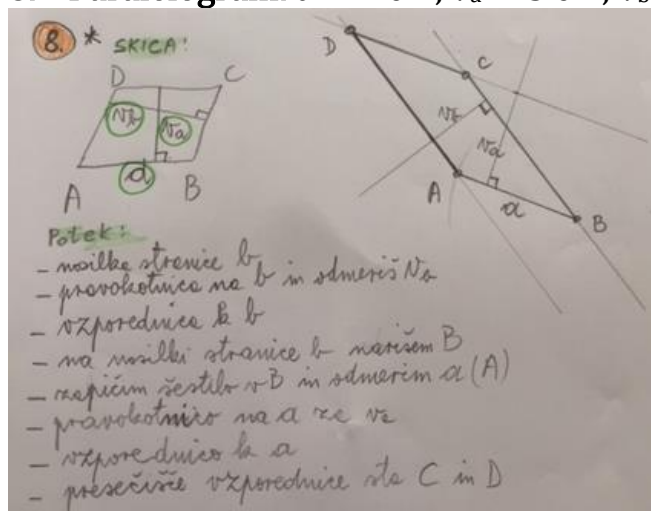 8. * SKICA:
D C
vb va
A a B
D
C
vb
va
A
a
B
Potek:
- nosilka stranice b
- pravokotnica na b in odmeriš vb
- vzporednica k b
- na nosilki stranice b narišem B
- zapičim šestilo v B in odmerim a (A)
- pravokotnico na a za va
- vzporednico k a
- presečišče vzporednice sta C in D